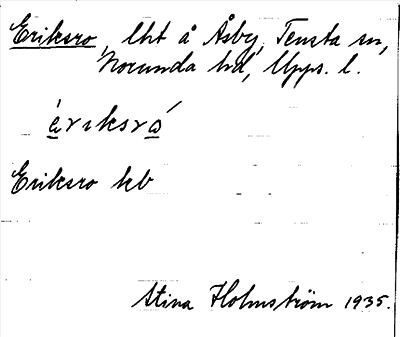 Eriksro, lht å Åsby, Tensta sn,
Norunda hd, Upps. l.
èriksró
Eriksro kb
Stina Holmström 1935.